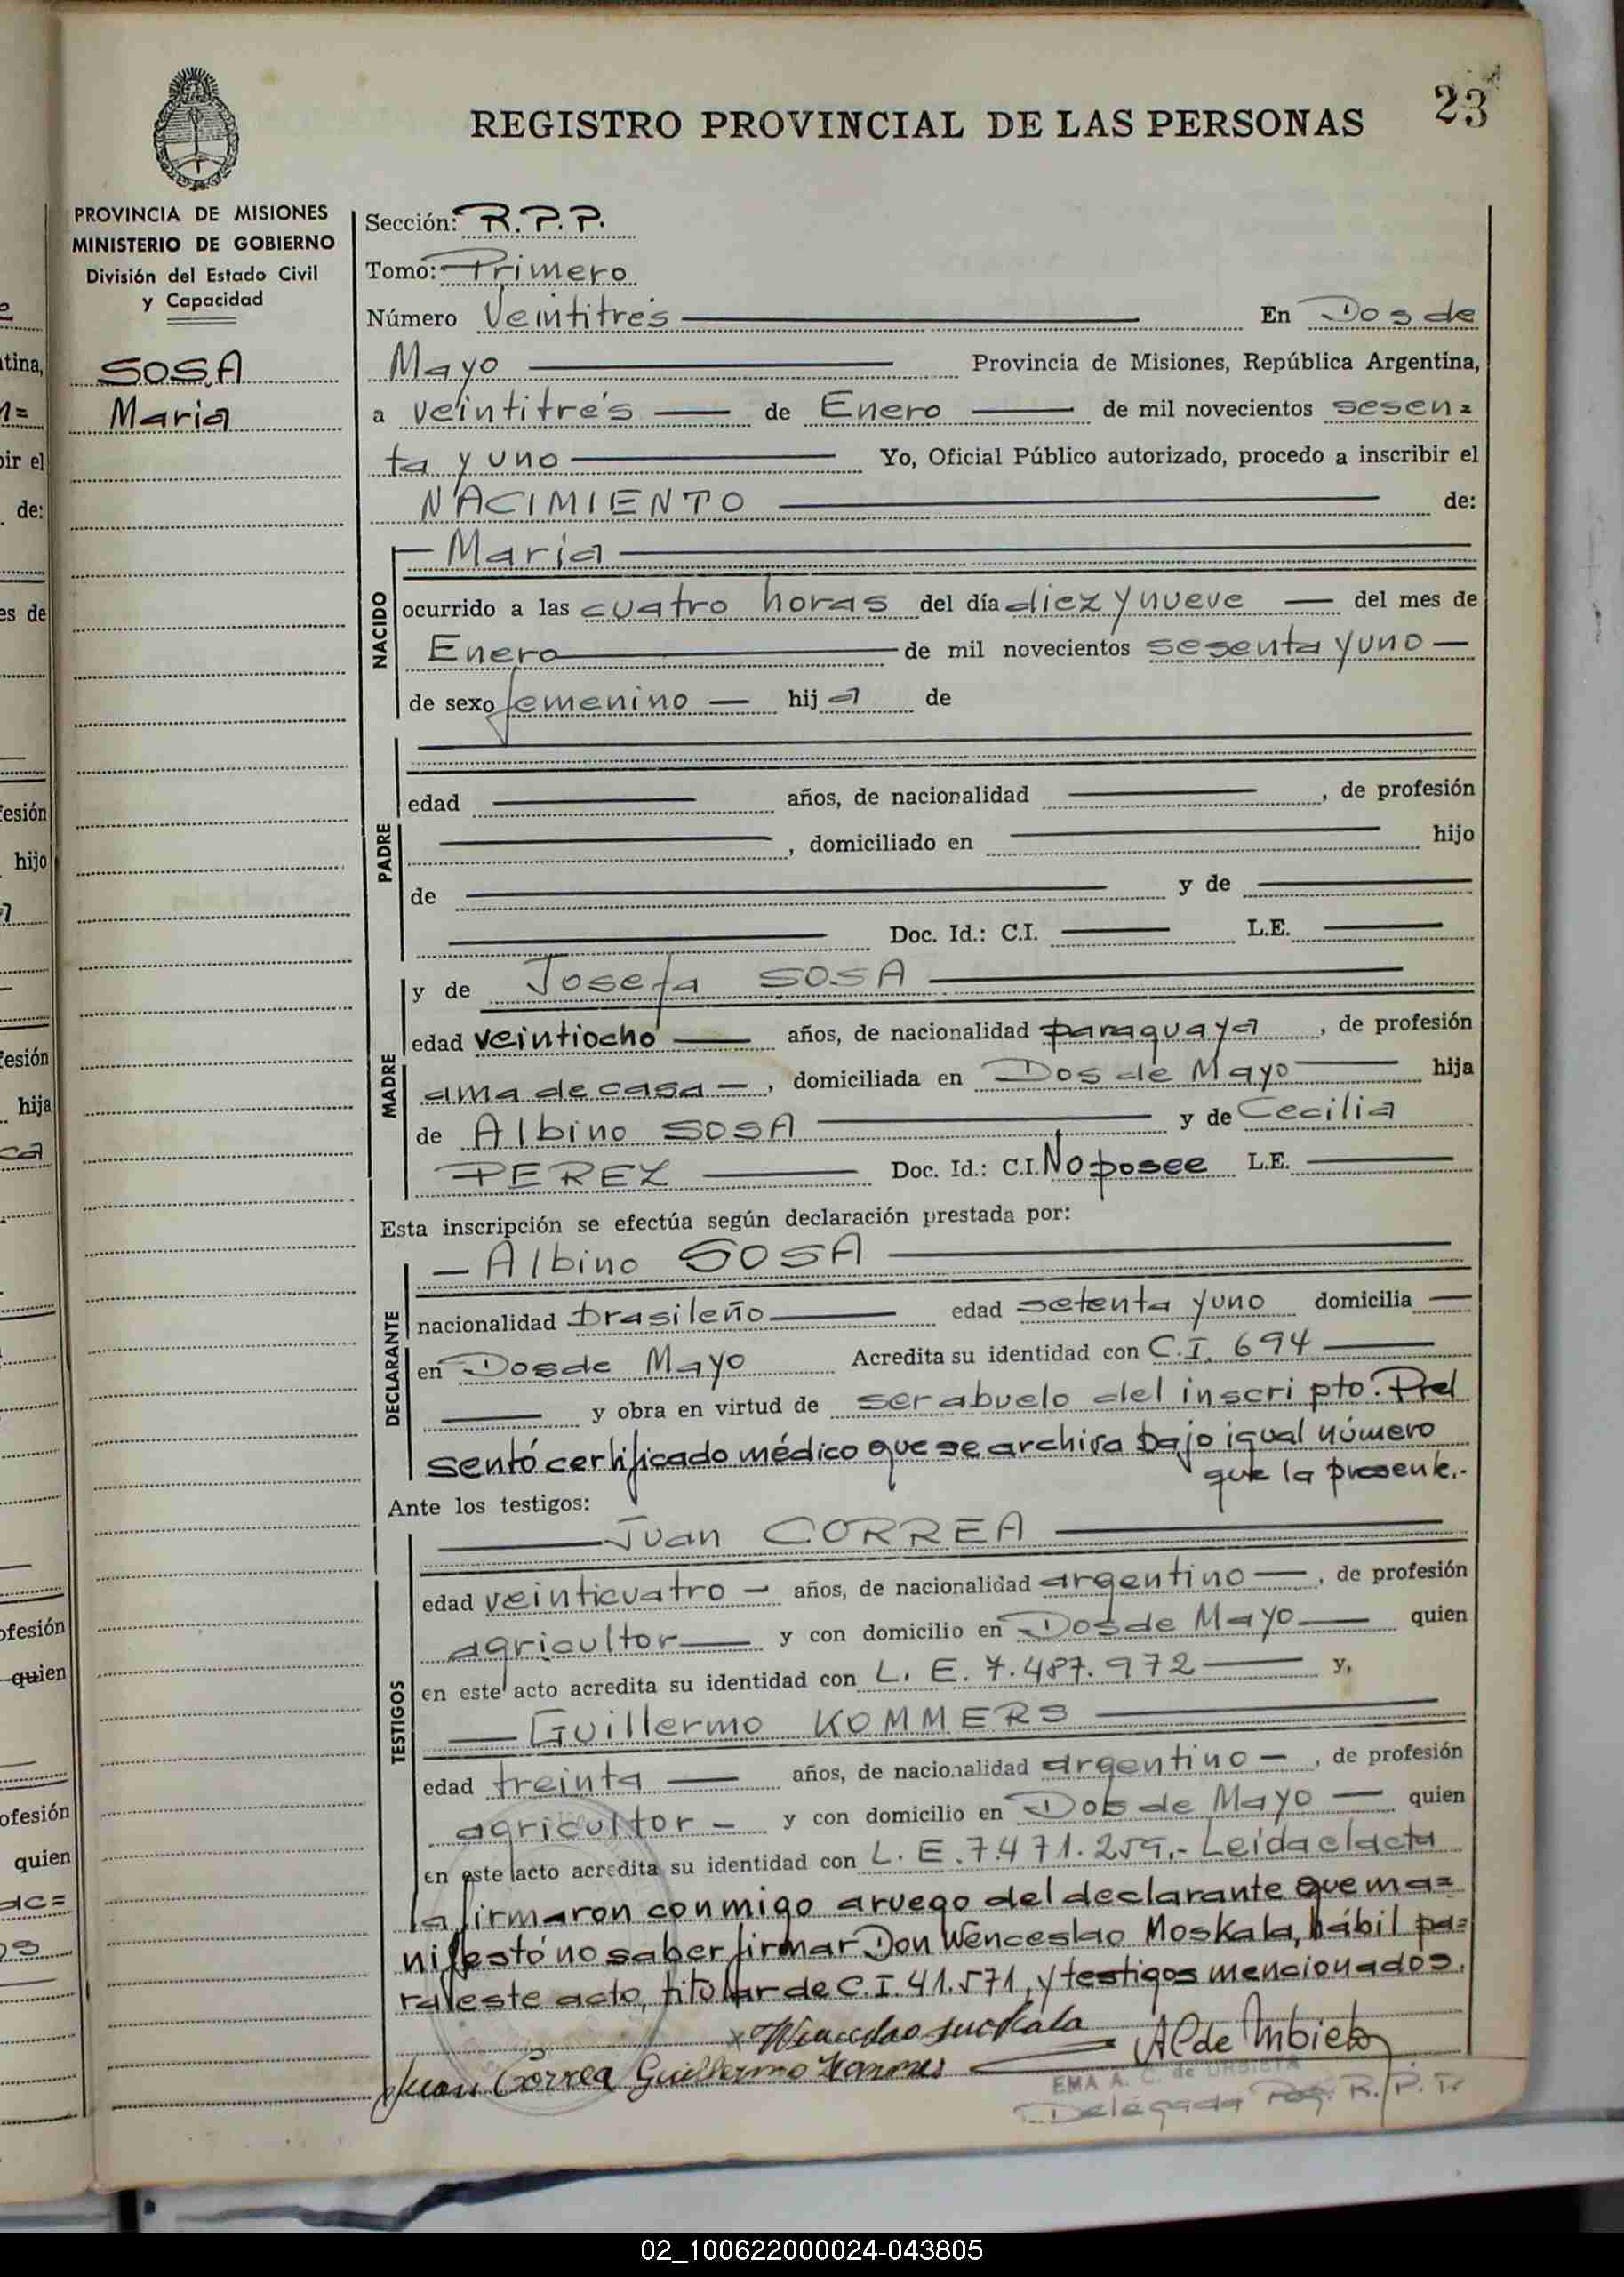 REGISTRO PROVINCIAL DE LAS PERSONAS 23
PROVINCIA DE MISIONES
MINISTERIO DE GOBIERNO
División del Estado Civil
y Capacidad
SOSA
María
Sección: R.P.P.
Tomo: Primero
Número Veintitrés En Dos de
Mayo Provincia de Misiones, República Argentina,
a veintitrés de Enero de mil novecientos sesen=
ta y uno Yo, Oficial Público autorizado, procedo a inscribir el
NACIMIENTO de:
NACIDO
María
ocurrido a las cuatro horas del día diez y nueve del mes de
Enero de mil novecientos sesenta y uno
de sexo femenino hija de
PADRE
edad años, de nacionalidad , de profesión
, domiciliado en hijo
de y de
Doc. Id.: C.I. L.E.
MADRE
y de Josefa SOSA
edad veintiocho años, de nacionalidad paraguaya , de profesión
ama de casa , domiciliada en Dos de Mayo hija
de Albino SOSA y de Cecilia
PEREZ Doc. Id.: C.I. No posee L.E.
Esta inscripción se efectúa según declaración prestada por:
DECLARANTE
Albino SOSA
nacionalidad brasileño edad setenta y uno domicilia
en Dos de Mayo Acredita su identidad con C.I. 694
y obra en virtud de ser abuelo del inscripto. Pre
sentó certificado médico que se archiva bajo igual número
que la presente.-
Ante los testigos:
TESTIGOS
Juan CORREA
edad veinticuatro años, de nacionalidad argentino , de profesión
agricultor y con domicilio en Dos de Mayo quien
en este acto acredita su identidad con L. E. 7.487.972 y,
Guillermo KOMMERS
edad treinta años, de nacionalidad argentino , de profesión
agricultor y con domicilio en Dos de Mayo quien
en este acto acredita su identidad con L. E. 7.471.259.- Leída el acta
la firmaron conmigo a ruego del declarante que ma=
nifestó no saber firmar Don Wenceslao Moskala, hábil pa=
ra este acto, titular de C.I. 41.571, y testigos mencionados.
Juan Correa Guillermo Kommers
EMA A. C. de URBIETA
Delegada Reg. R. P. P.
02_100622000024-043805